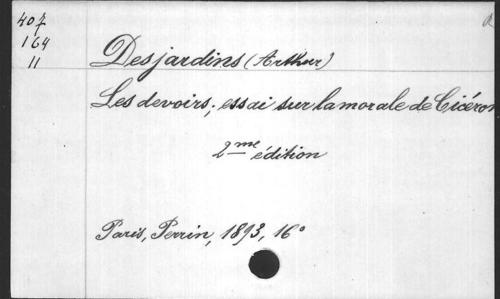 407
164
11
a
Desjardins (Arthur)
Les devoirs; essai sur la morale de Cicéron
2me édition
Paris, Perrin, 1893, 16°